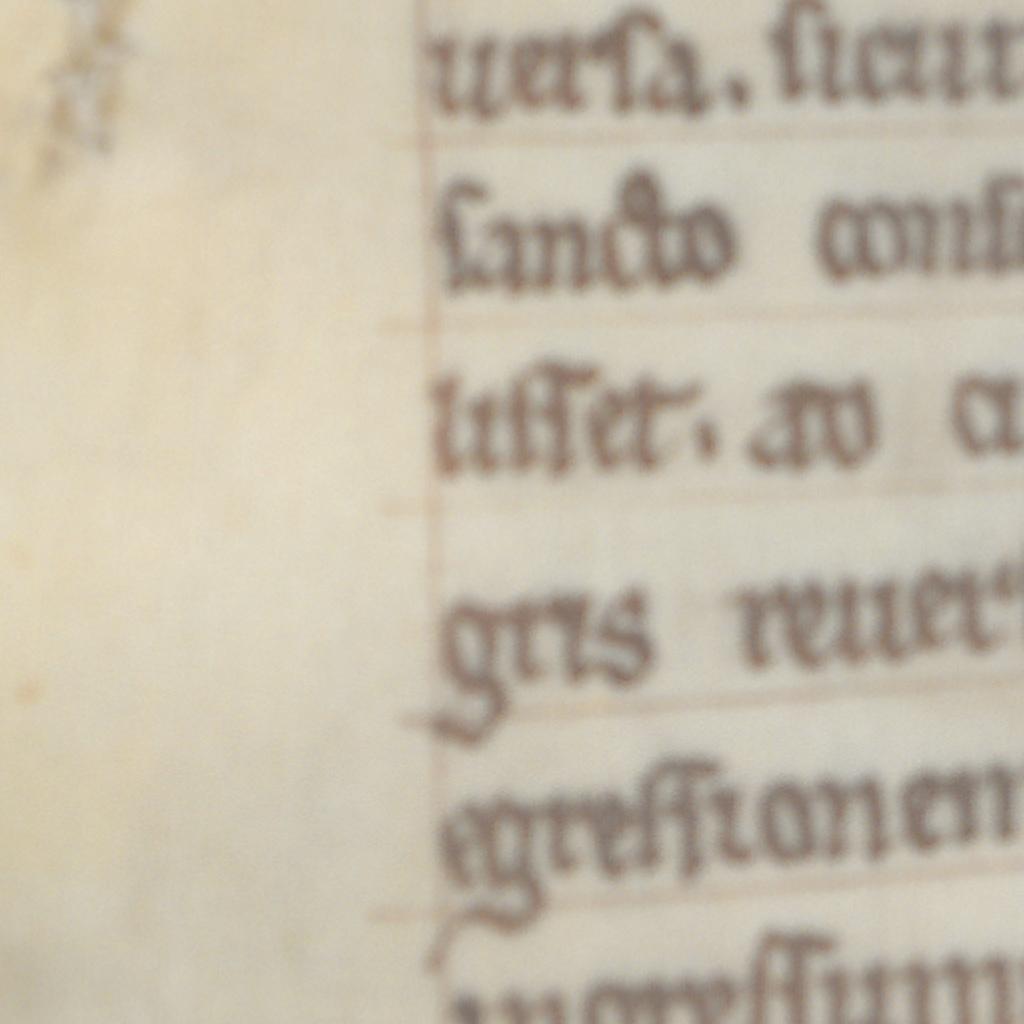 uerſa. ſicut
ſancto conſi
luſſet. ad a
gris reuer
egreſſionem
ingreſſum